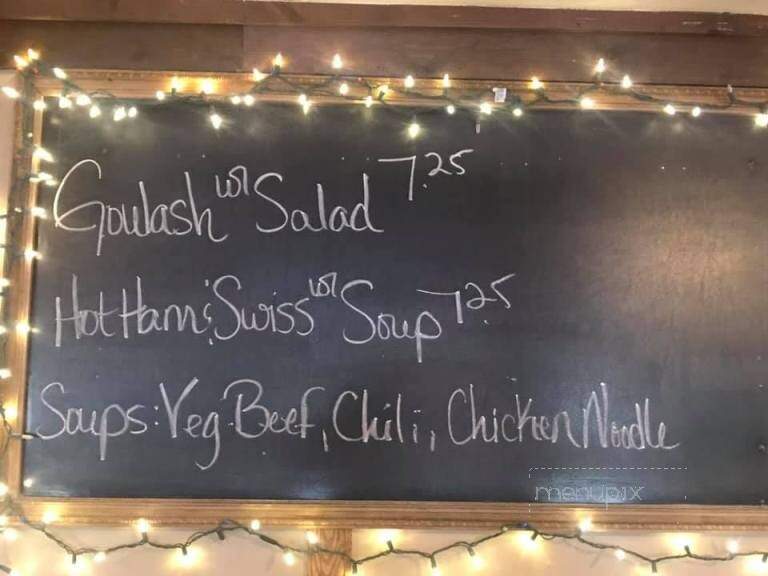 Goulash w/ Salad 7.25
Hot Ham & Swiss w/ Soup 7.25
Soups: Veg Beef, Chili, Chicken Noodle
menupix